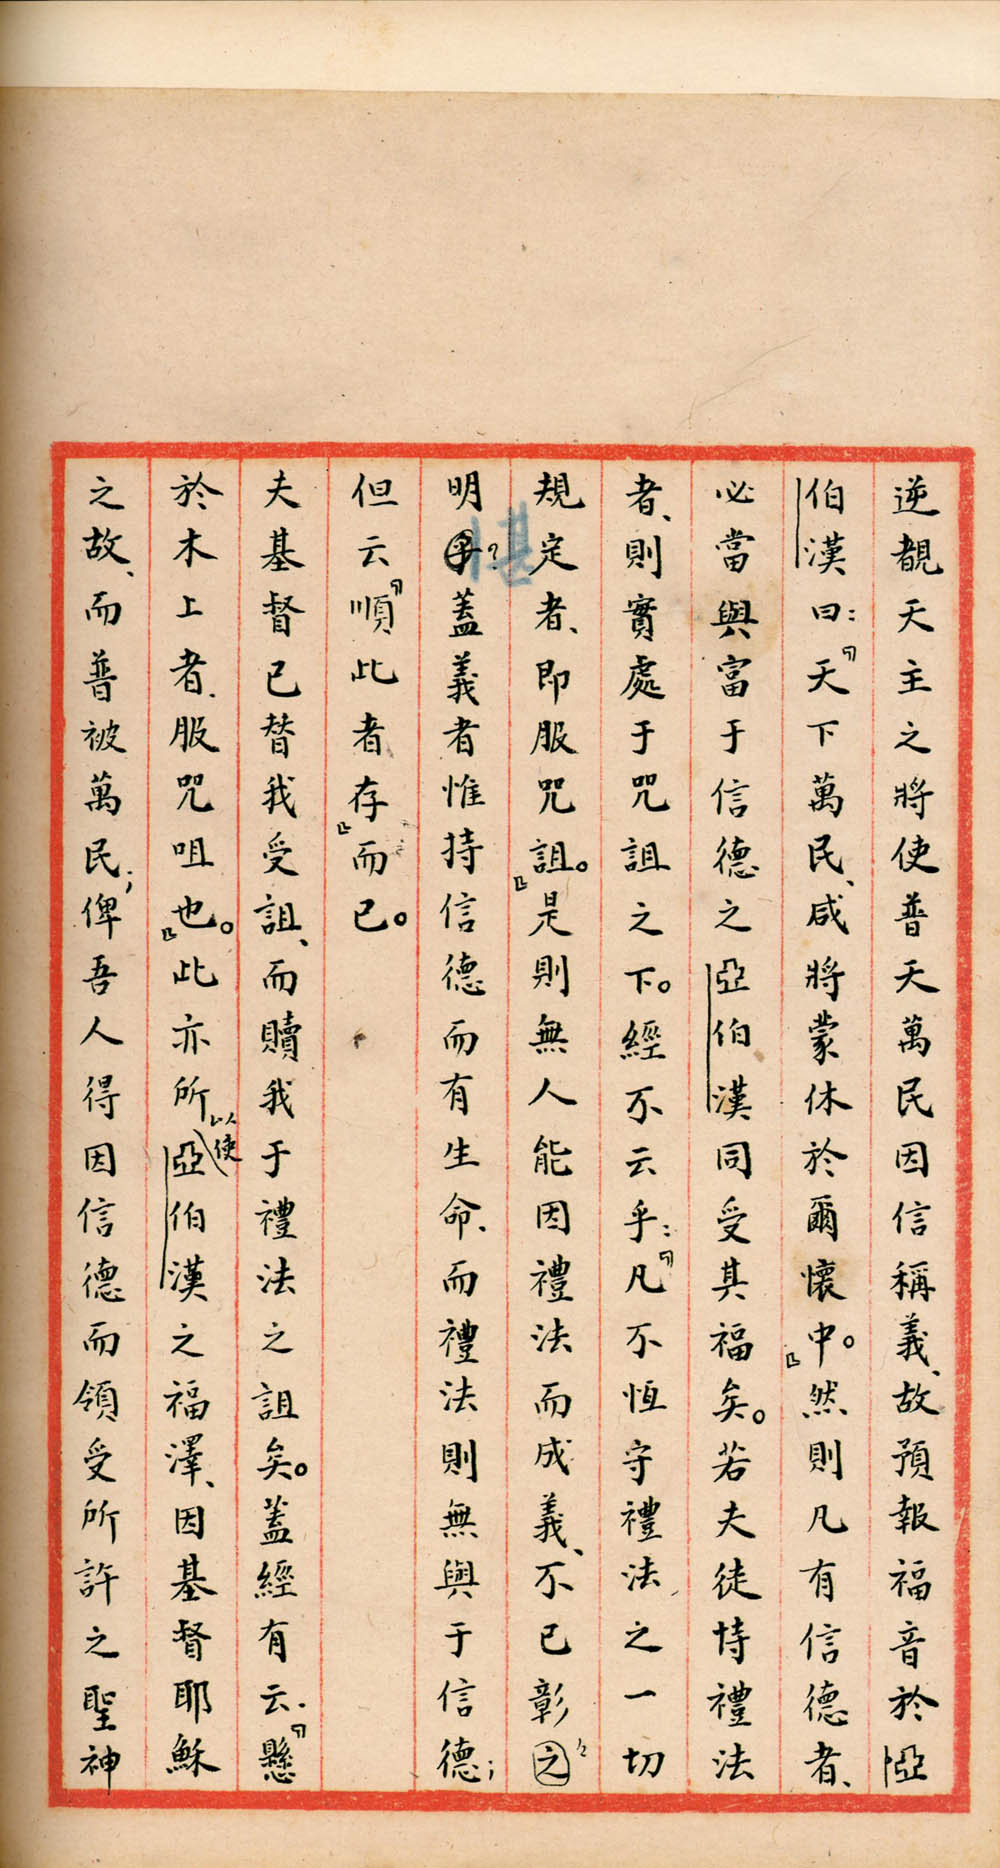 逆覩天主之將使普天萬民因信稱義、故預報福音於亞
伯漢曰：『天下萬民、咸將蒙休於爾懷中。』然則凡有信德者、
必當與富于信德之亞伯漢同受其福矣。若夫徒恃禮法
者、則實處于咒詛之下。經不云乎：『凡不恆守禮法之一切
規定者、即服咒詛。』是則無人能因禮法而成義、不已彰之
明乎？蓋義者惟持信德而有生命、而禮法則無與于信德；
但云『順此者存』而已。
夫基督已替我受詛、而贖我于禮法之詛矣。蓋經有云．『懸
於木上者、服咒咀也。』此亦所以使亞伯漢之福澤、因基督耶穌
之故、而普被萬民；俾吾人得因信德而領受所許之聖神